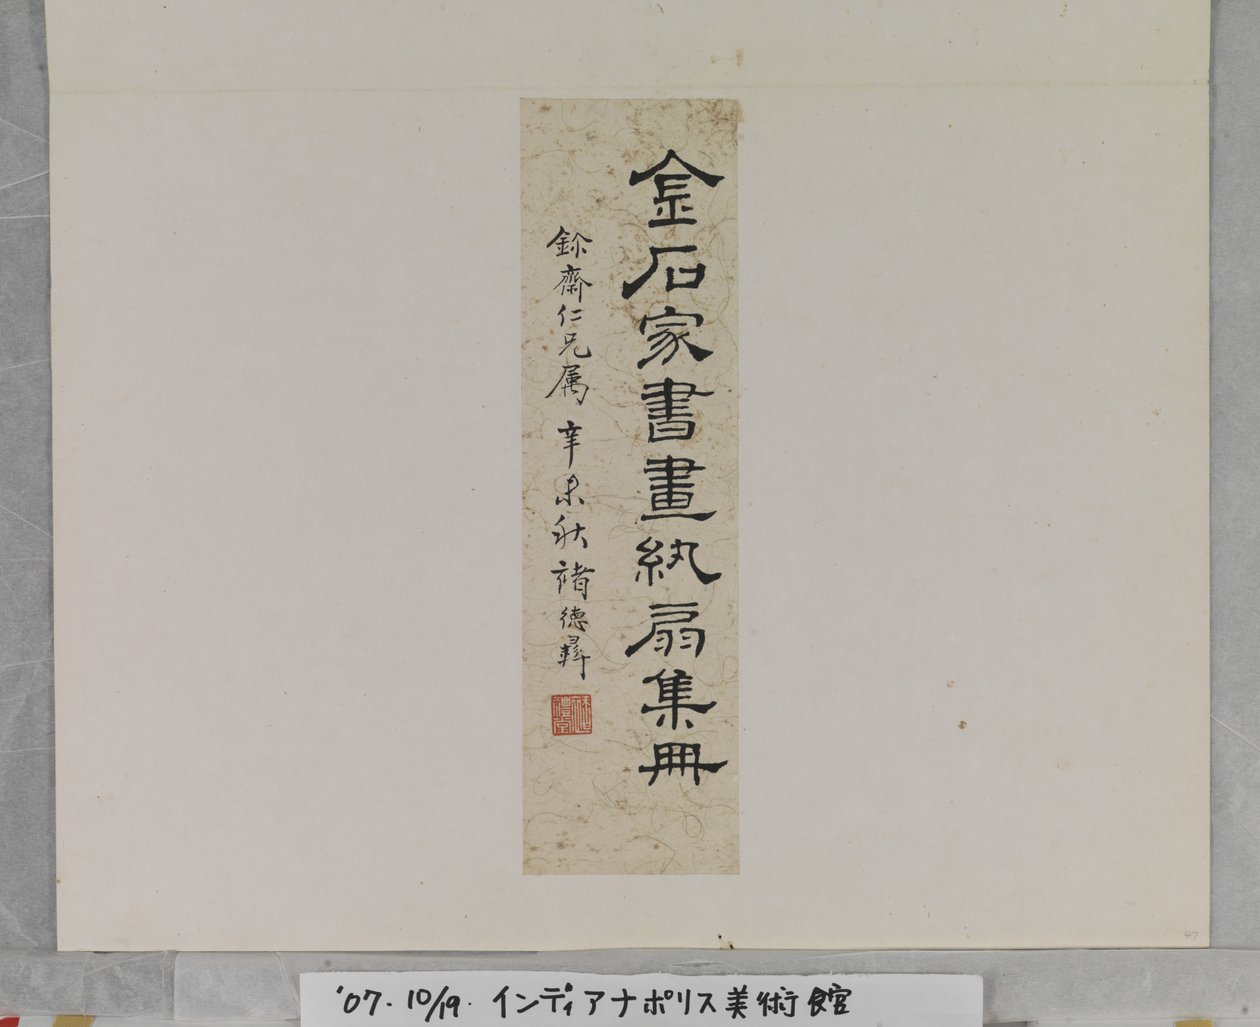 金石家書畫紈扇集冊
鉨齋仁兄属 辛未秋 褚德彝
47
'07. 10/19. インディアナポリス美術館